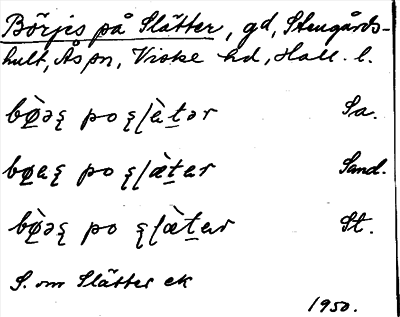 Börjes på Slätter, gd, Stengårds-
hult, Ås sn, Viske hd, Hall. l.
bø̀əʂ po ʂlæ̀tər Sa.
bøaʂ po ʂlæ̀tar Sand.
bø̀əʂ po ʂlæ̀tar St.
S. om Slätter ek
1950.